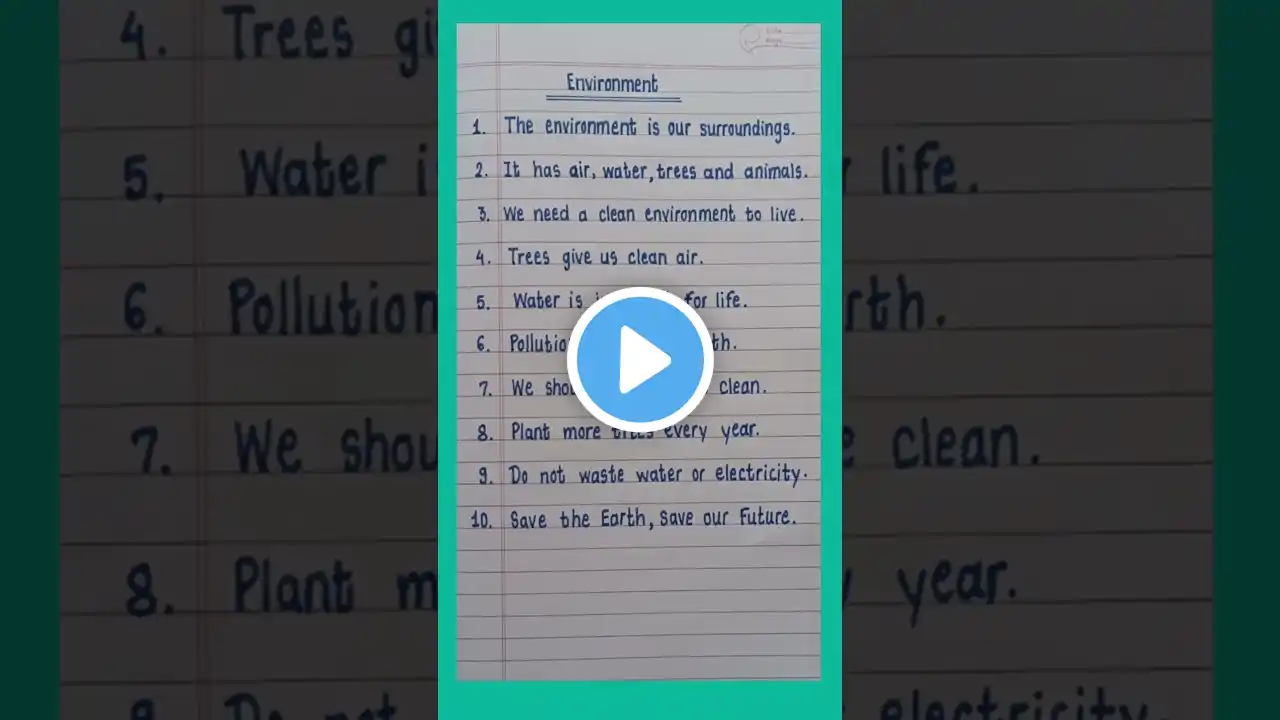 Environment
1. The environment is our surroundings.
2. It has air, water, trees and animals.
3. We need a clean environment to live.
4. Trees give us clean air.
5. Water is for life.
6. Pollution
7. We clean.
8. Plant more trees every year.
9. Do not waste water or electricity.
10. Save the Earth, Save our Future.